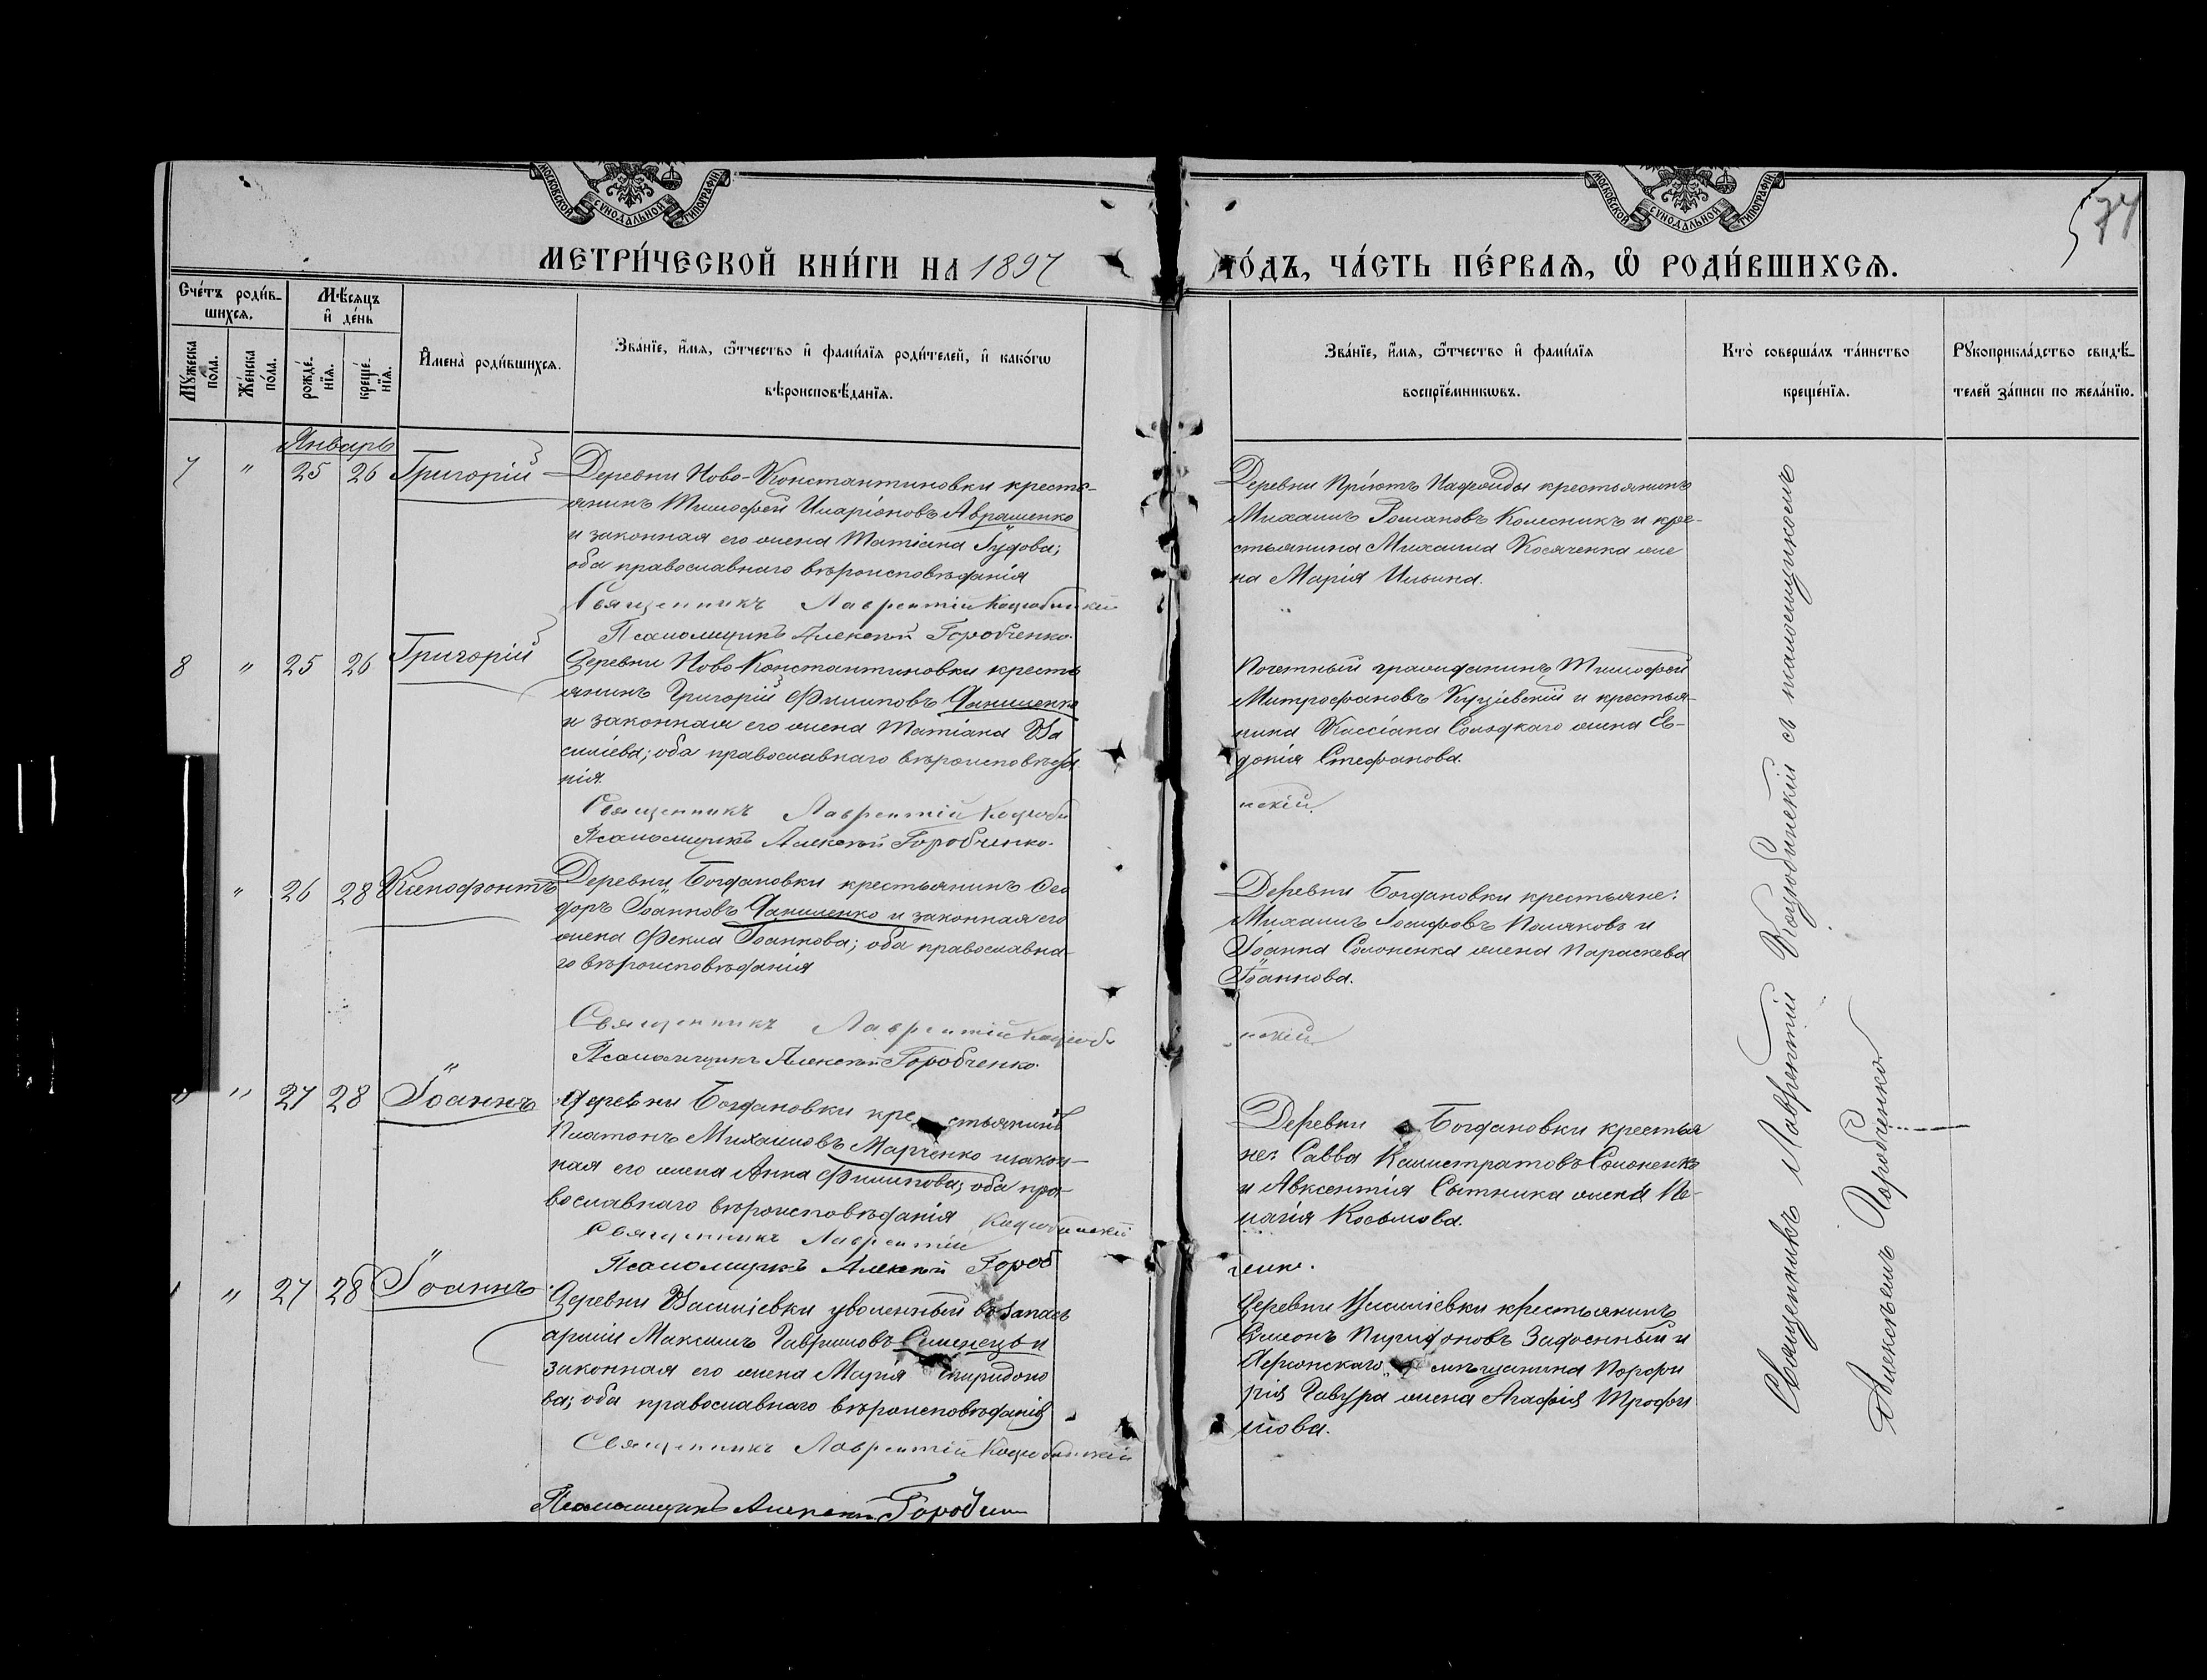 МОСКОВСКОЙ СѴНОДАЛЬНОЙ ТИПОГРАФІИ
МОСКОВСКОЙ СѴНОДАЛЬНОЙ ТИПОГРАФІИ
МЕТРИ́ЧЕСКОЙ КНИ́ГИ НА 1897
ГО́ДЪ, ЧА́СТЬ ПЕ́РВАѦ, Ѽ РОДИ́ВШИХСѦ.
Сче́тъ роди́в-
шихсѧ.
Мꙋ́жеска
пола.
Же́нска
по́ла.
Мѣ́сяцъ
и҆ де́нь
рожде́-
нїѧ.
креще́-
нїѧ.
И҆мена̀ роди́вшихсѧ.
Зва́нїе, и҆́мѧ, ѻ҆́тчество и҆ фами́лїѧ роди́телей, и҆ како́гѡ
вѣроисповѣ́данїѧ.
Зва́нїе, и҆́мѧ, ѻ҆́тчество и҆ фами́лїѧ
воспрїе́мникѡвъ.
Кто̀ соверша́лъ та́инство
креще́нїѧ.
Рꙋкоприкла́дство свидѣ́-
телей за́писи по жела́нїю.
Январь
7 " 25 26 Григорій
Деревни Ново-Константиновки кресть-
янинъ Тимофей Иларіоновъ Аврашенко
и законная его жена Татіана Іудова;
оба православнаго вѣроисповѣданія
Священникъ Лаврентій Коцюбинскій
Псаломщикъ Алексѣй Горобченко.
Деревни Пріютъ крестьянинъ
Михаилъ Романовъ Колесникъ и кре-
стьянина Михаила Косяченка же
на Марія Ильина.
8 " 25 26 Григорій
Деревни Ново-Константиновки кресть
янинъ Григорій Филиповъ Даниленко
и законная его жена Татіана Ва
силіева; оба православнаго вѣроисповѣда
нія.
Священникъ Лаврентій Коцюби
Псаломщикъ Алексѣй Горобченко.
Почетный гражданинъ Тимофей
Митрофановъ и крестья-
нина Кассіана жена Ев-
докія Стефанова.
нскій.
" 26 28 Ксенофонтъ
Деревни Богдановки крестьянинъ Ѳео
доръ Іоанновъ Даниленко и законная его
жена Фекла Іоаннова; оба православна-
го вѣроисповѣданія
Священникъ Лаврентій Коцюби
Псаломщикъ Алексѣй Горобченко.
Деревни Богдановки крестьяне:
Михаилъ Іосифовъ Поляковъ и
Іоанна Солоненка жена Параскева
Іоаннова.
нскій.
" 27 28 Іоаннъ
Деревни Богдановки крестьянинъ
Платонъ Михаиловъ Марченко и закон-
ная его жена Анна Филипова; оба пра-
вославнаго вѣроисповѣданія
Священникъ Лаврентій Коцюбинскій
Псаломщикъ Алексѣй Гороб
Деревни Богдановки крестья
не: Савва Калистратовъ Солоненко
и Авксентія Сытника жена Пе-
лагія Косьмова.
ченко.
" 27 28 Іоаннъ
Деревни Василіевки уволенный въ запасъ
арміи Максимъ Гавриловъ Семенецъ и
законная его жена Марія Спиридоно
ва; оба православнаго вѣроисповѣданія
Священникъ Лаврентій Коцюбинскій
Псаломщикъ Алексѣй Горобченко
Деревни Василіевки крестьянинъ
Симонъ и
Херсонскаго мѣщанина Порфи
рія Гавура жена Агафія Трофи
мова.
Священникъ Лаврентій Коцюбинскій съ псаломщикомъ
Алексѣемъ Горобченко